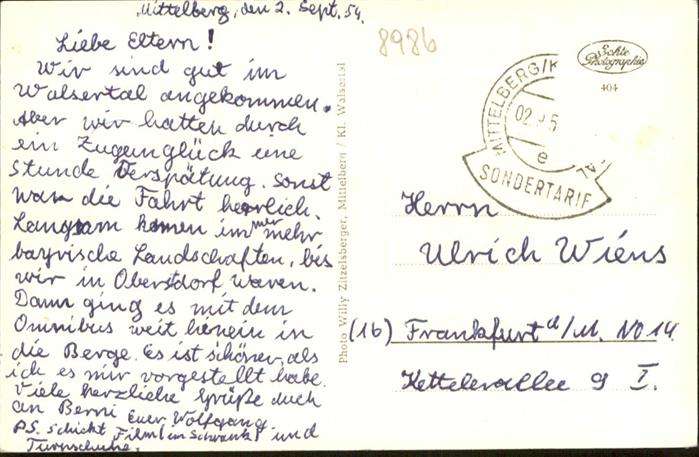 Mittelberg, den 2. Sept. 54.
Liebe Eltern!
Wir sind gut im
Walsertal angekommen.
Aber wir hatten durch
ein Zugunglück eine
Stunde Verspätung. Sonst
war die Fahrt herrlich.
Langsam kamen immer mehr
bayrische Landschaften, bis
wir in Oberstdorf waren.
Dann ging es mit dem
Omnibus weit hinein in
die Berge. Es ist schöner, als
ich es mir vorgestellt habe.
Viele herzliche Grüße auch
an Berni Euer Wolfgang.
P.S. Schickt Film (im Schrank) und
Turnschuhe.
Photo Willy Zitzelsberger, Mittelberg / Kl. Walsertal
8986
Echte
Photographie
404
MITTELBERG/K
02.
e
AL
SONDERTARIF
Herrn
Ulrich Wiens
(16) Frankfurt a/M. NO 14.
Kettelerallee 9 I.